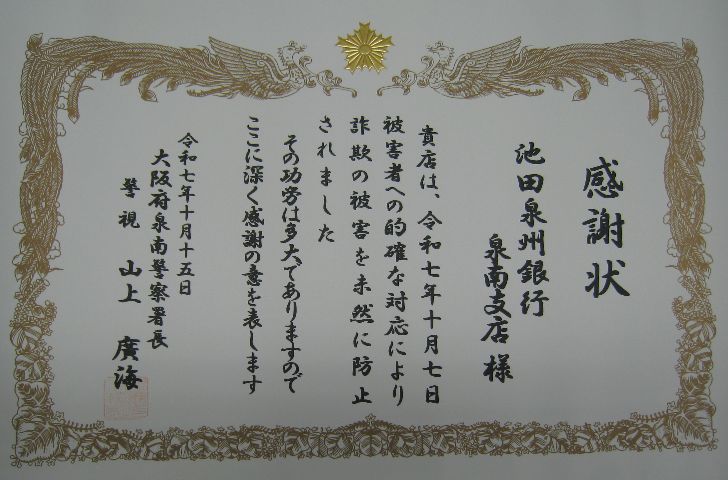 感謝状
池田泉州銀行
泉南支店様
貴店は、令和七年十月七日
被害者への的確な対応により
詐欺の被害を未然に防止
されました
その功労は多大でありますので
ここに深く感謝の意を表します
令和七年十月十五日
大阪府泉南警察署長
警視 山上 廣海